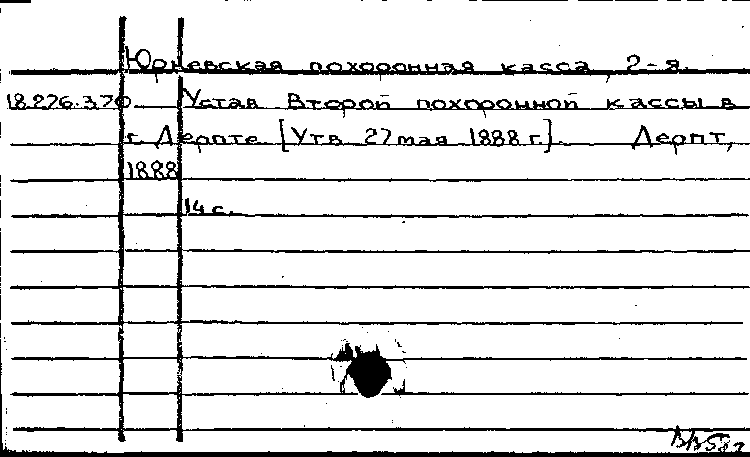 Юрьевская похоронная касса, 2-я.
18.276.3.70 Устав Второй похоронной кассы в
г. Дерпте [Утв. 27 мая 1888 г.]. Дерпт,
1888
14 с.